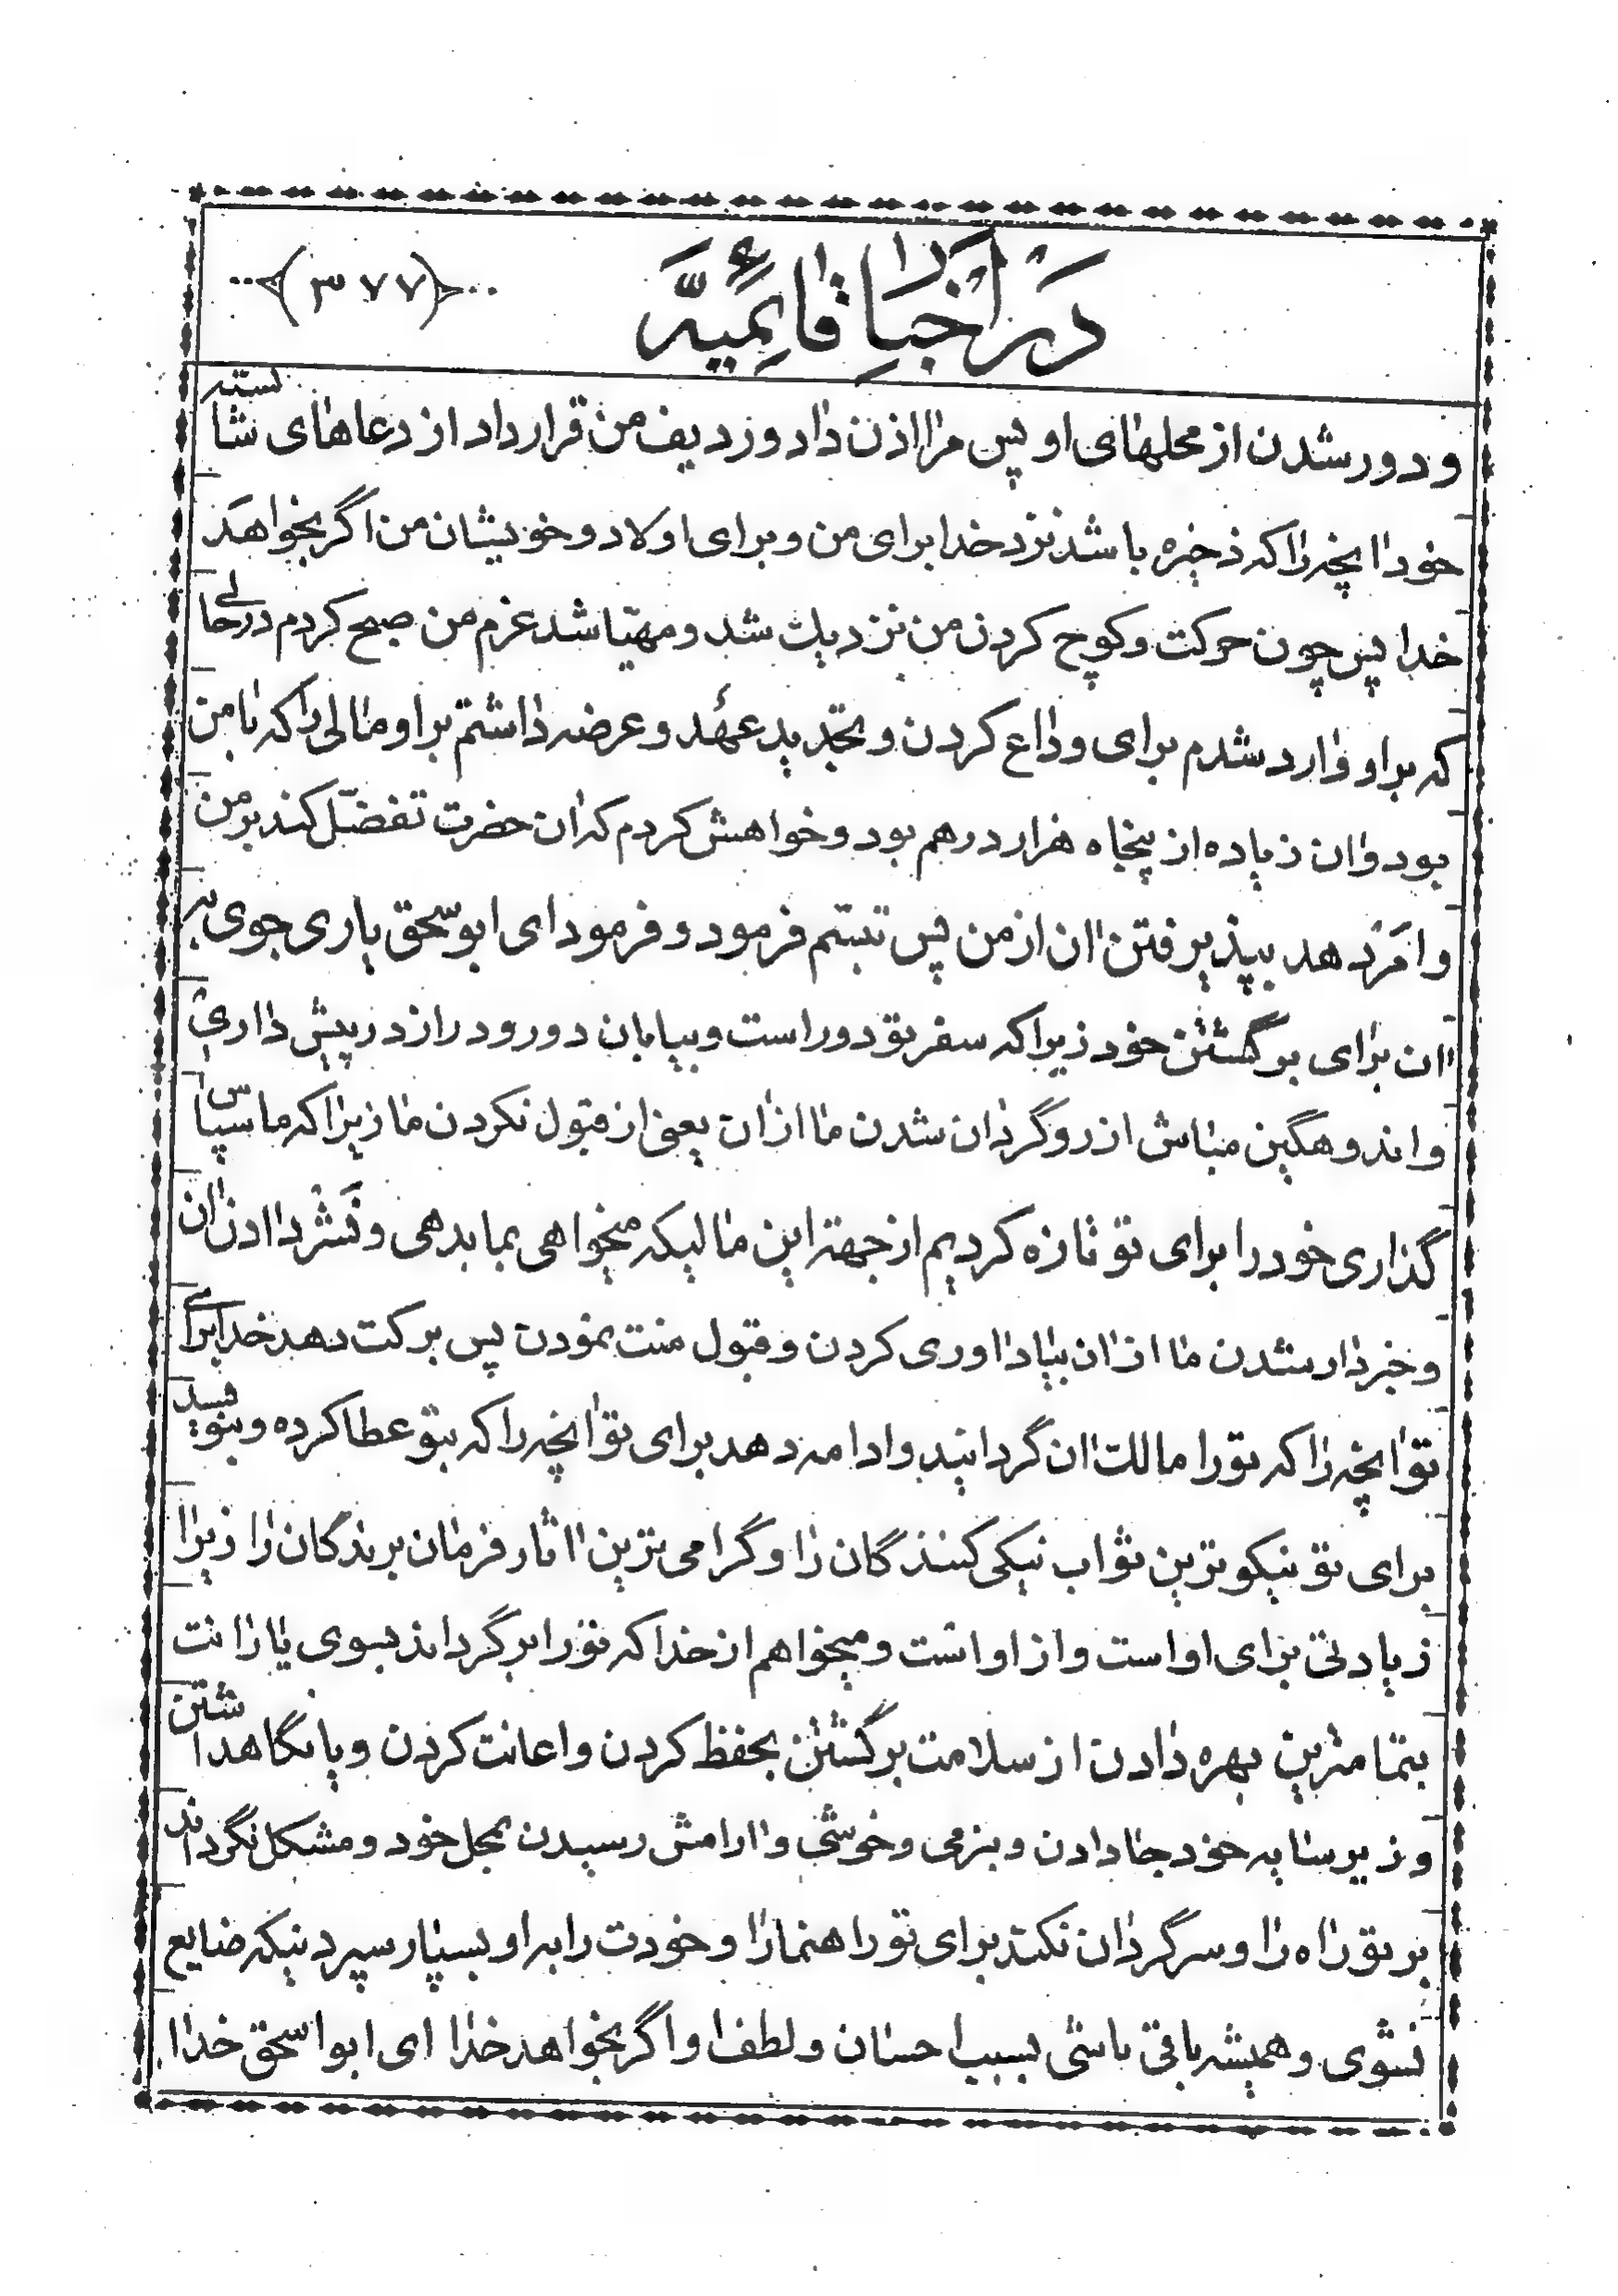 در اخبار قائمیّه
(۳۷۷)
و دور شدن از محلهای او پس مرا اذن داد و زدیف من قرار داد از دعاهای شایسته
خود انچه را که ذخیره باشد نزد خدا برای من و برای اولاد و خویشان من اگر بخواهد
خدا پس چون حرکت و کوچ کردن من نزدیک شد و مهیّا شد عزم من صبح کردم در حالی
که بر او وارد شدم برای وداع کردن و تجدید عهد و عرضه داشتم بر او مالی را که با من
بود و ان زیاده از پنجاه هزار درهم بود و خواهش کردم که ان حضرت تفضّل کند بر من
و امر دهد بپذیرفتن ان از من پس تبسّم فرمود و فرمود ای ابو سحق یاری جوی به
ان برای برگشتن خود زیرا که سفر تو دور است و بیابان دور و دراز در پیش داری
و اندوهگین مباش از روگردان شدن ما از ان یعنی از قبول نکردن ما زیرا که ما سپاس
گذاری خود را برای تو تازه کردیم از جهة این مالیکه میخواهی بما بدهی و نشر دادن ان
و خبردار شدن ما از ان بیاد اوری کردن و قبول منت نمودن پس برکت دهد خدا برای
تو انچه را که تو را مالک ان گردانید و ادامه دهد برای تو انچه را که بتو عطا کرده و بنویسد
برای تو نیکوترین ثواب نیکی کنندگان را و گرامی ترین اثار فرمان برندگان را زیرا
زیادتی برای او است و از او است و میخواهم از خدا که تو را برگرداند بسوی یارانت
بتمامترین بهره دادن از سلامت برگشتن بحفظ کردن و اعانت کردن و پانگاهداشتن
و زیر سایه خود جا دادن و بنرمی و خوشی و ارامش رسیدن بمحل خود و مشکل نگرداند
بر تو راه را و سرگردان نکند برای تو راهنما را و خودت را به او بسپار سپردنیکه ضایع
نشوی و همیشه باقی باشی بسبب احسان و لطف او اگر بخواهد خدا ای ابو اسحق خدا